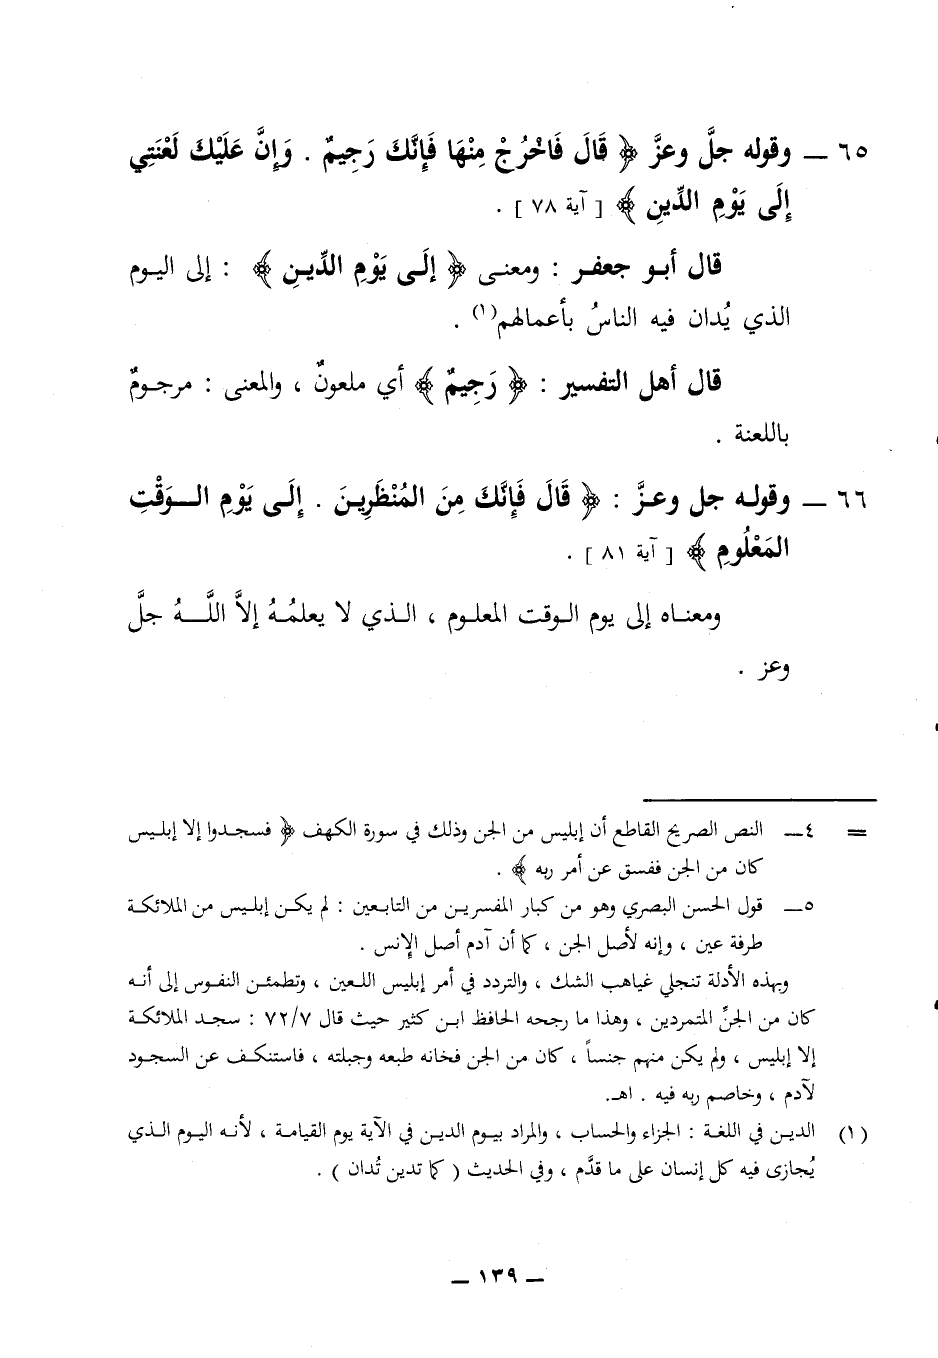 ٦٥ ــ وقوله جلَّ وعزَّ ﴿ قَالَ فَاخْرُجْ مِنْهَا فَإِنَّكَ رَجِيمٌ . وَإِنَّ عَلَيْكَ لَعْنَتِي
إِلَى يَوْمِ الدِّينِ ﴾ [ آية ٧٨ ] .
قال أبو جعفر : ومعنى ﴿ إِلَى يَوْمِ الدِّينِ ﴾ : إلى اليوم
الذي يُدان فيه الناسُ بأعمالهم(١) .
قال أهل التفسير : ﴿ رَجِيمٌ ﴾ أي ملعونٌ ، والمعنى : مرجومٌ
باللعنة .
٦٦ ــ وقوله جل وعزَّ : ﴿ قَالَ فَإِنَّكَ مِنَ المُنْظَرِينَ . إِلَى يَوْمِ الوَقْتِ
المَعْلُومِ ﴾ [ آية ٨١ ] .
ومعناه إلى يوم الوقت المعلوم ، الذي لا يعلمُهُ إلاَّ اللَّهُ جلَّ
وعز .
= ٤ــ النص الصريح القاطع أن إبليس من الجن وذلك في سورة الكهف ﴿ فسجدوا إلا إبليس
كان من الجن ففسق عن أمر ربه ﴾ .
٥ــ قول الحسن البصري وهو من كبار المفسرين من التابعين : لم يكن إبليس من الملائكة
طرفة عين ، وإنه لأصل الجن ، كما أن آدم أصل الإنس .
وبهذه الأدلة تنجلي غياهب الشك ، والتردد في أمر إبليس اللعين ، وتطمئن النفوس إلى أنه
كان من الجنِّ المتمردين ، وهذا ما رجحه الحافظ ابن كثير حيث قال ٧٢/٧ : سجد الملائكة
إلا إبليس ، ولم يكن منهم جنساً ، كان من الجن فخانه طبعه وجبلته ، فاستنكف عن السجود
لآدم ، وخاصم ربه فيه . اهـ.
(١) الدين في اللغة : الجزاء والحساب ، والمراد بيوم الدين في الآية يوم القيامة ، لأنه اليوم الذي
يُجازى فيه كل إنسان على ما قدَّم ، وفي الحديث ( كما تدين تُدان ) .
ــ ١٣٩ ــ